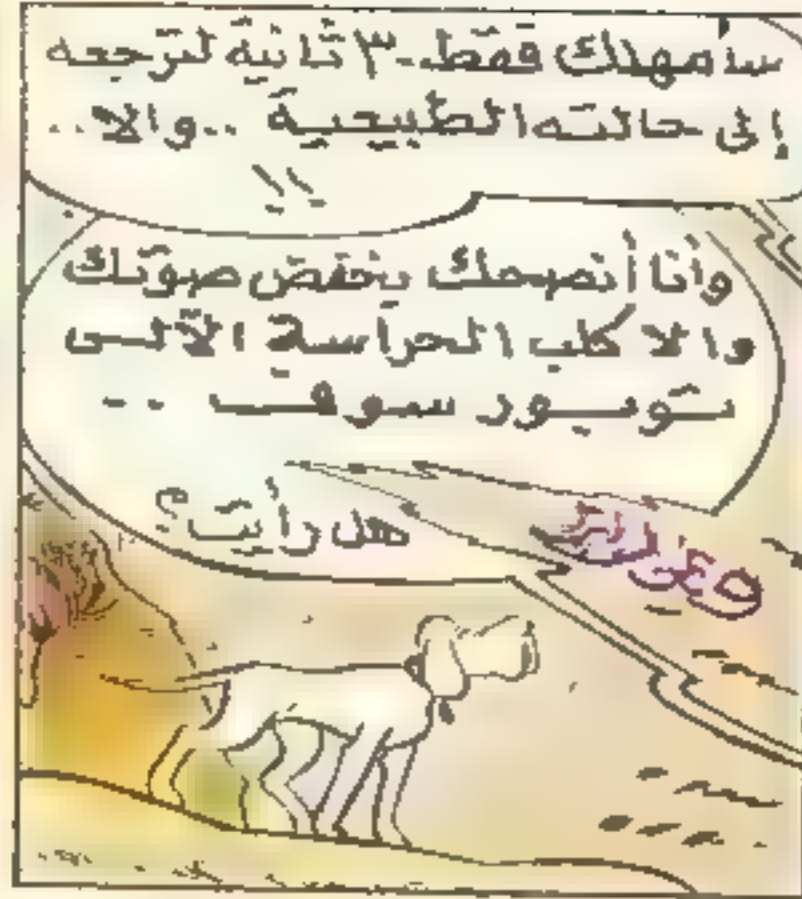 سأمهلك فقط ٣٠ ثانية لترجعه
إلى حالته الطبيعية .. والا ..
!!
وأنا أنصحك بخفض صوتك
والا كلب الحراسة الآلى
توبور سوف ..
هل رأيت؟